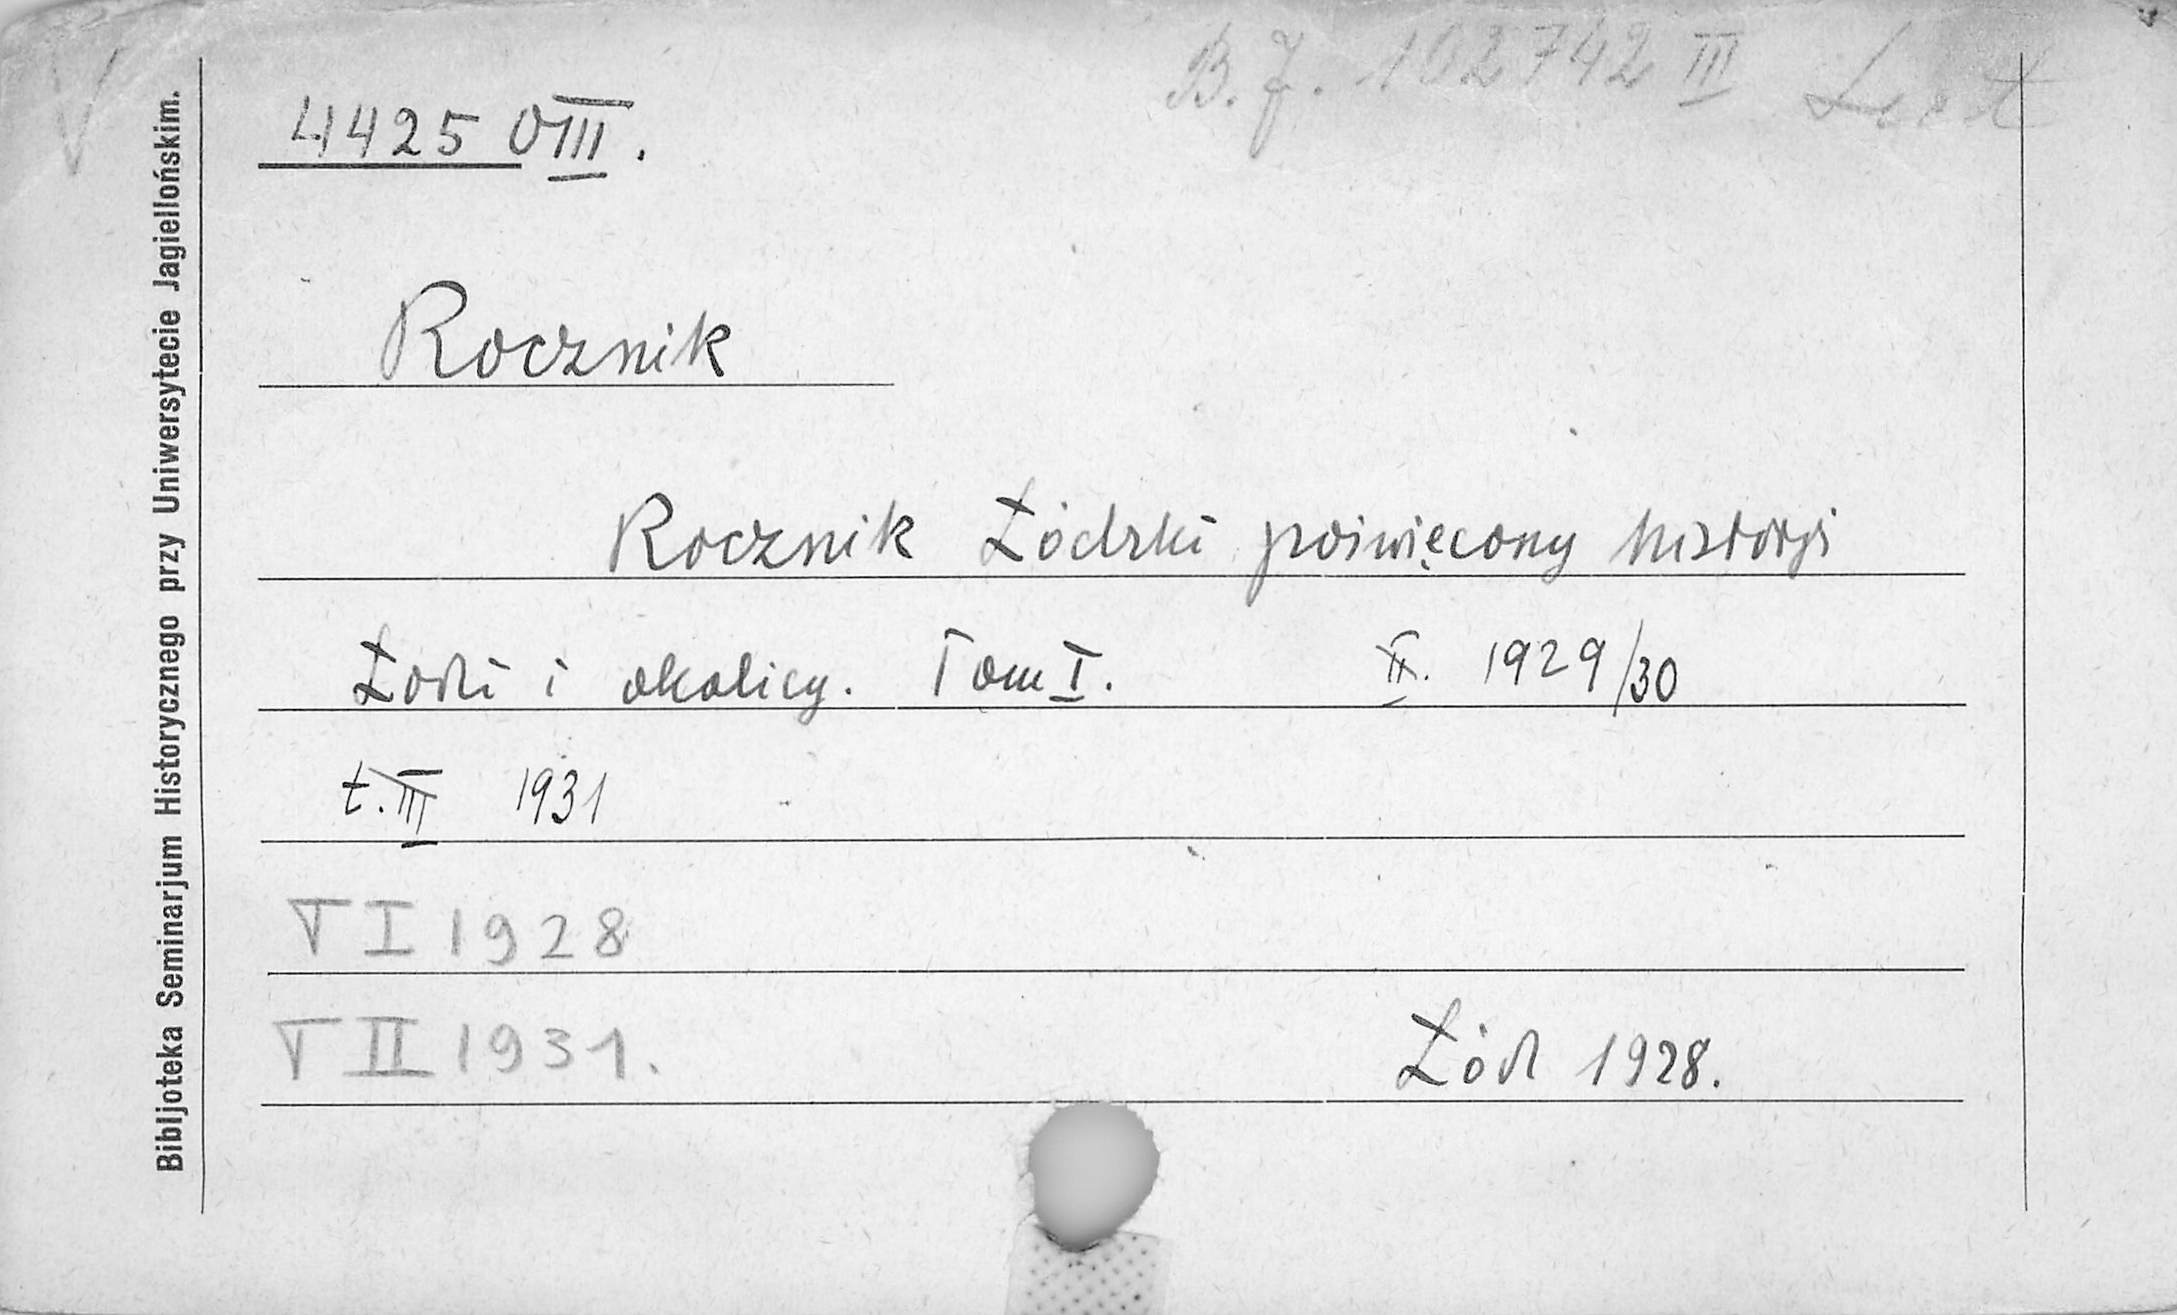 B. J. 102742 III
4425 O III.
Rocznik
Rocznik Łódzki poświęcony historji
Łodzi i okolicy. Tom I. II. 1929/30
t. III 1931
T I 1928
T II 1931.
Łódź 1928.
Bibljoteka Seminarjum Historycznego przy Uniwersytecie Jagiellońskim.